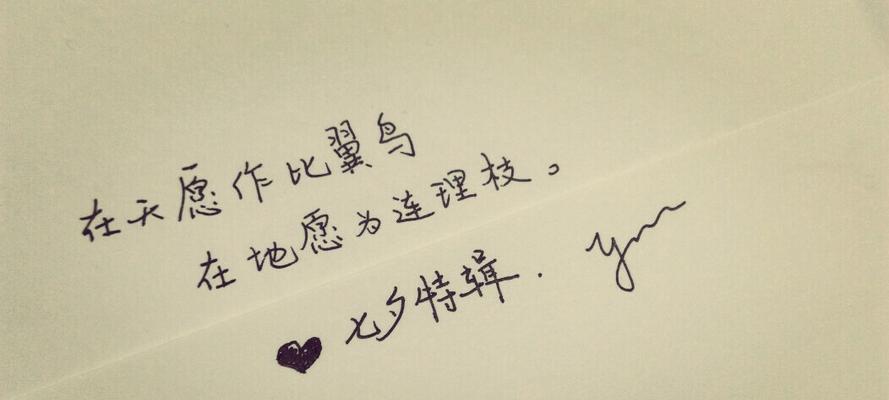 在天愿作比翼鸟
在地愿为连理枝。
七夕特辑.